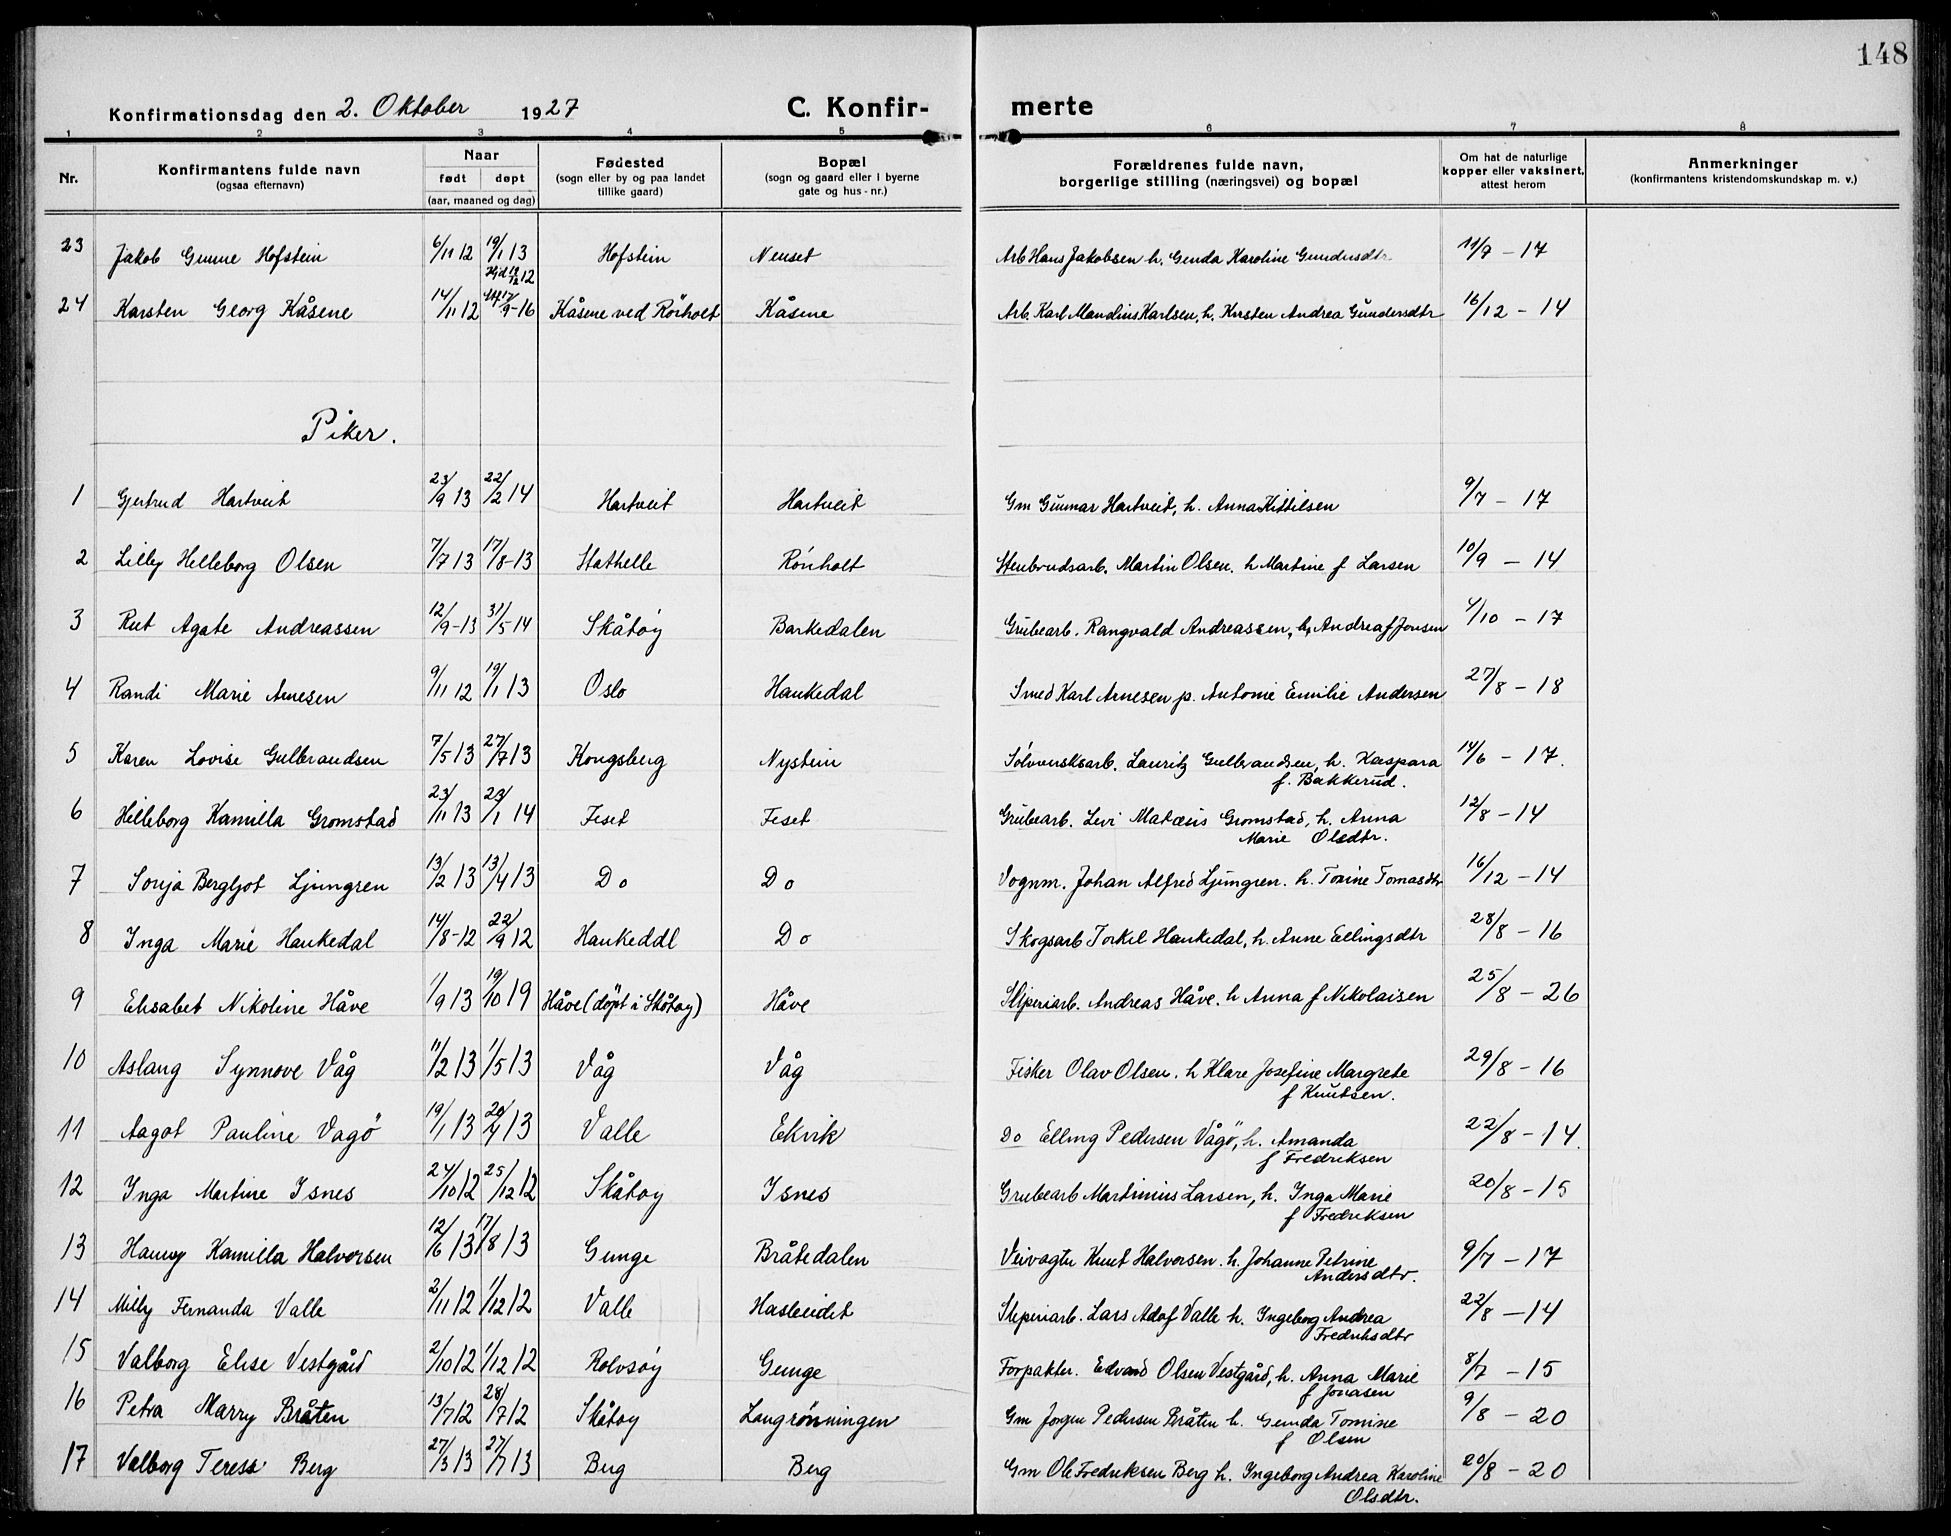 148
Konfirmationsdag den 2. Oktober 1927 C. Konfir- merte
1 2 3 4 5 6 7 8
Nr. Konfirmantens fulde navn (ogsaa efternavn) Naar født døpt (aar, maaned og dag) Fødested (sogn eller by og paa landet tillike gaard) Bopæl (sogn og gaard eller i byerne gate og hus-nr.) Forældrenes fulde navn, borgerlige stilling (næringsvei) og bopæl Om hat de naturlige kopper eller vaksinert, attest herom Anmerkninger (konfirmantens kristendomskundskap m. v.)
23 Jakob Gunne Hofstein 6/11 12 19/1 13 Hofstein Neuset Arb Hans Jakobsen h. Genda Karoline Gundersdtr 11/9 - 17
24 Karsten Georg Kåsene 14/11 12 9-16 Kåsene ved Rörholt Kåsene Arb. Karl Mandius Karlsen, h. Kirsten Andrea Gundersdtr 16/12 - 14
Piker.
1 Gjertrud Hartveit 23/9 13 22/2 14 Hartveit Hartveit Gm Gunnar Hartveit, h. Anna Kittilsen 9/7 - 17
2 Lilly Helleborg Olsen 7/7 13 17/8-13 Stathelle Rönholt Stenbrudsarb. Martin Olsen. h Martine f Larsen 10/9 - 14
3 Rut Agate Andreassen 12/9-13 31/5-14 Skåtøy Barkedalen Grubearb. Rangvald Andreassen, h, Andrea f Jonsen 4/10 - 17
4 Randi Marie Arnesen 9/11 12 19/1 13 Oslo Haukedal Smed Karl Arnesen p. Antonie Emilie Andersen 27/8 - 18
5 Karen Lovise Gulbrandsen 7/5 13 27/7 13 Kongsberg Nystein Sölvverksarb. Lauritz Gulbrandsen, h. Kaspara f. Bakkerud. 14/6 - 17.
6 Hilleborg Kamilla Gromstad 23/11 13 23/1 14 Feset Feset Grubearb. Levi Matæus Gromstad, h. Anna Marie Olsdtr. 12/8 - 14
7 Sonja Bergljot Ljungren 13/2 13 13/4 13 Do Do Vognm. Johan Alfred Ljungren. h. Torine Tomasdtr 16/12 - 14
8 Inga Marie Haukedal 14/8-12 22/9 12 Haukeddl Do Skogsarb Torkel Haukedal, h. Anne Ellingsdtr 28/8 - 16
9 Elisabet Nikoline Håve 1/9 13 19/10 19 Håve (döpt i Skåtøy) Håve Sliperiarb. Andreas Håve. h Anna f Nikolaisen 25/8 - 26
10 Aslaug Synnove Våg 11/2 13 1/5 13 Våg Våg Fisker Olav Olsen. h Klare Josefine Margrete f Knutsen. 29/8 - 16
11 Aagot Pauline Vagö 19/1 13 20/4 13 Valle Ekvik Do Elling Pedersen Vågö, h. Amanda f Fredriksen 22/8 - 14.
12 Inga Martine Isnes 24/10 12 25/12 12 Skåtøy Isnes Grubearb Martinius Larsen, h. Inga Marie f Fredriksen 20/8 - 15
13 Hanny Kamilla Halvorsen 12/6 13 17/8 13 Gunge Bråtedalen Veivagter Knut Halvorsen. h. Johanne Petrine Andersdtr. 9/7 - 17
14 Milly Fernanda Valle 2/11 12 1/12 12 Valle Hasleidet Sliperiarb. Lars Adof Valle h. Ingeborg Andrea Fredriksdtr 22/8 - 14
15 Valborg Elise Vestgård 2/10 12 1/12 12 Rolvsøy Gunge Forpakter. Edvard Olsen Vestgård, h. Anna Marie f Jonasen 8/7 - 15
16 Petra Marry Bråten 13/7 12 28/7 12 Skåtøy Langrönningen Gm Jorgen Pedersen Bråten h. Gunda Tomine f Olsen 9/8 - 20
17 Valborg Terese Berg 27/3 13 27/7 13 Berg Berg Gm Ole Fredriksen Berg h. Ingeborg Andrea Karoline Olsdtr. 20/8 - 20